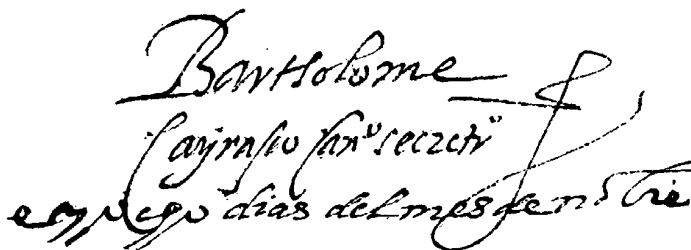 Bartholome
Cayrasco can.º secret.º
dias del mes de no.bre